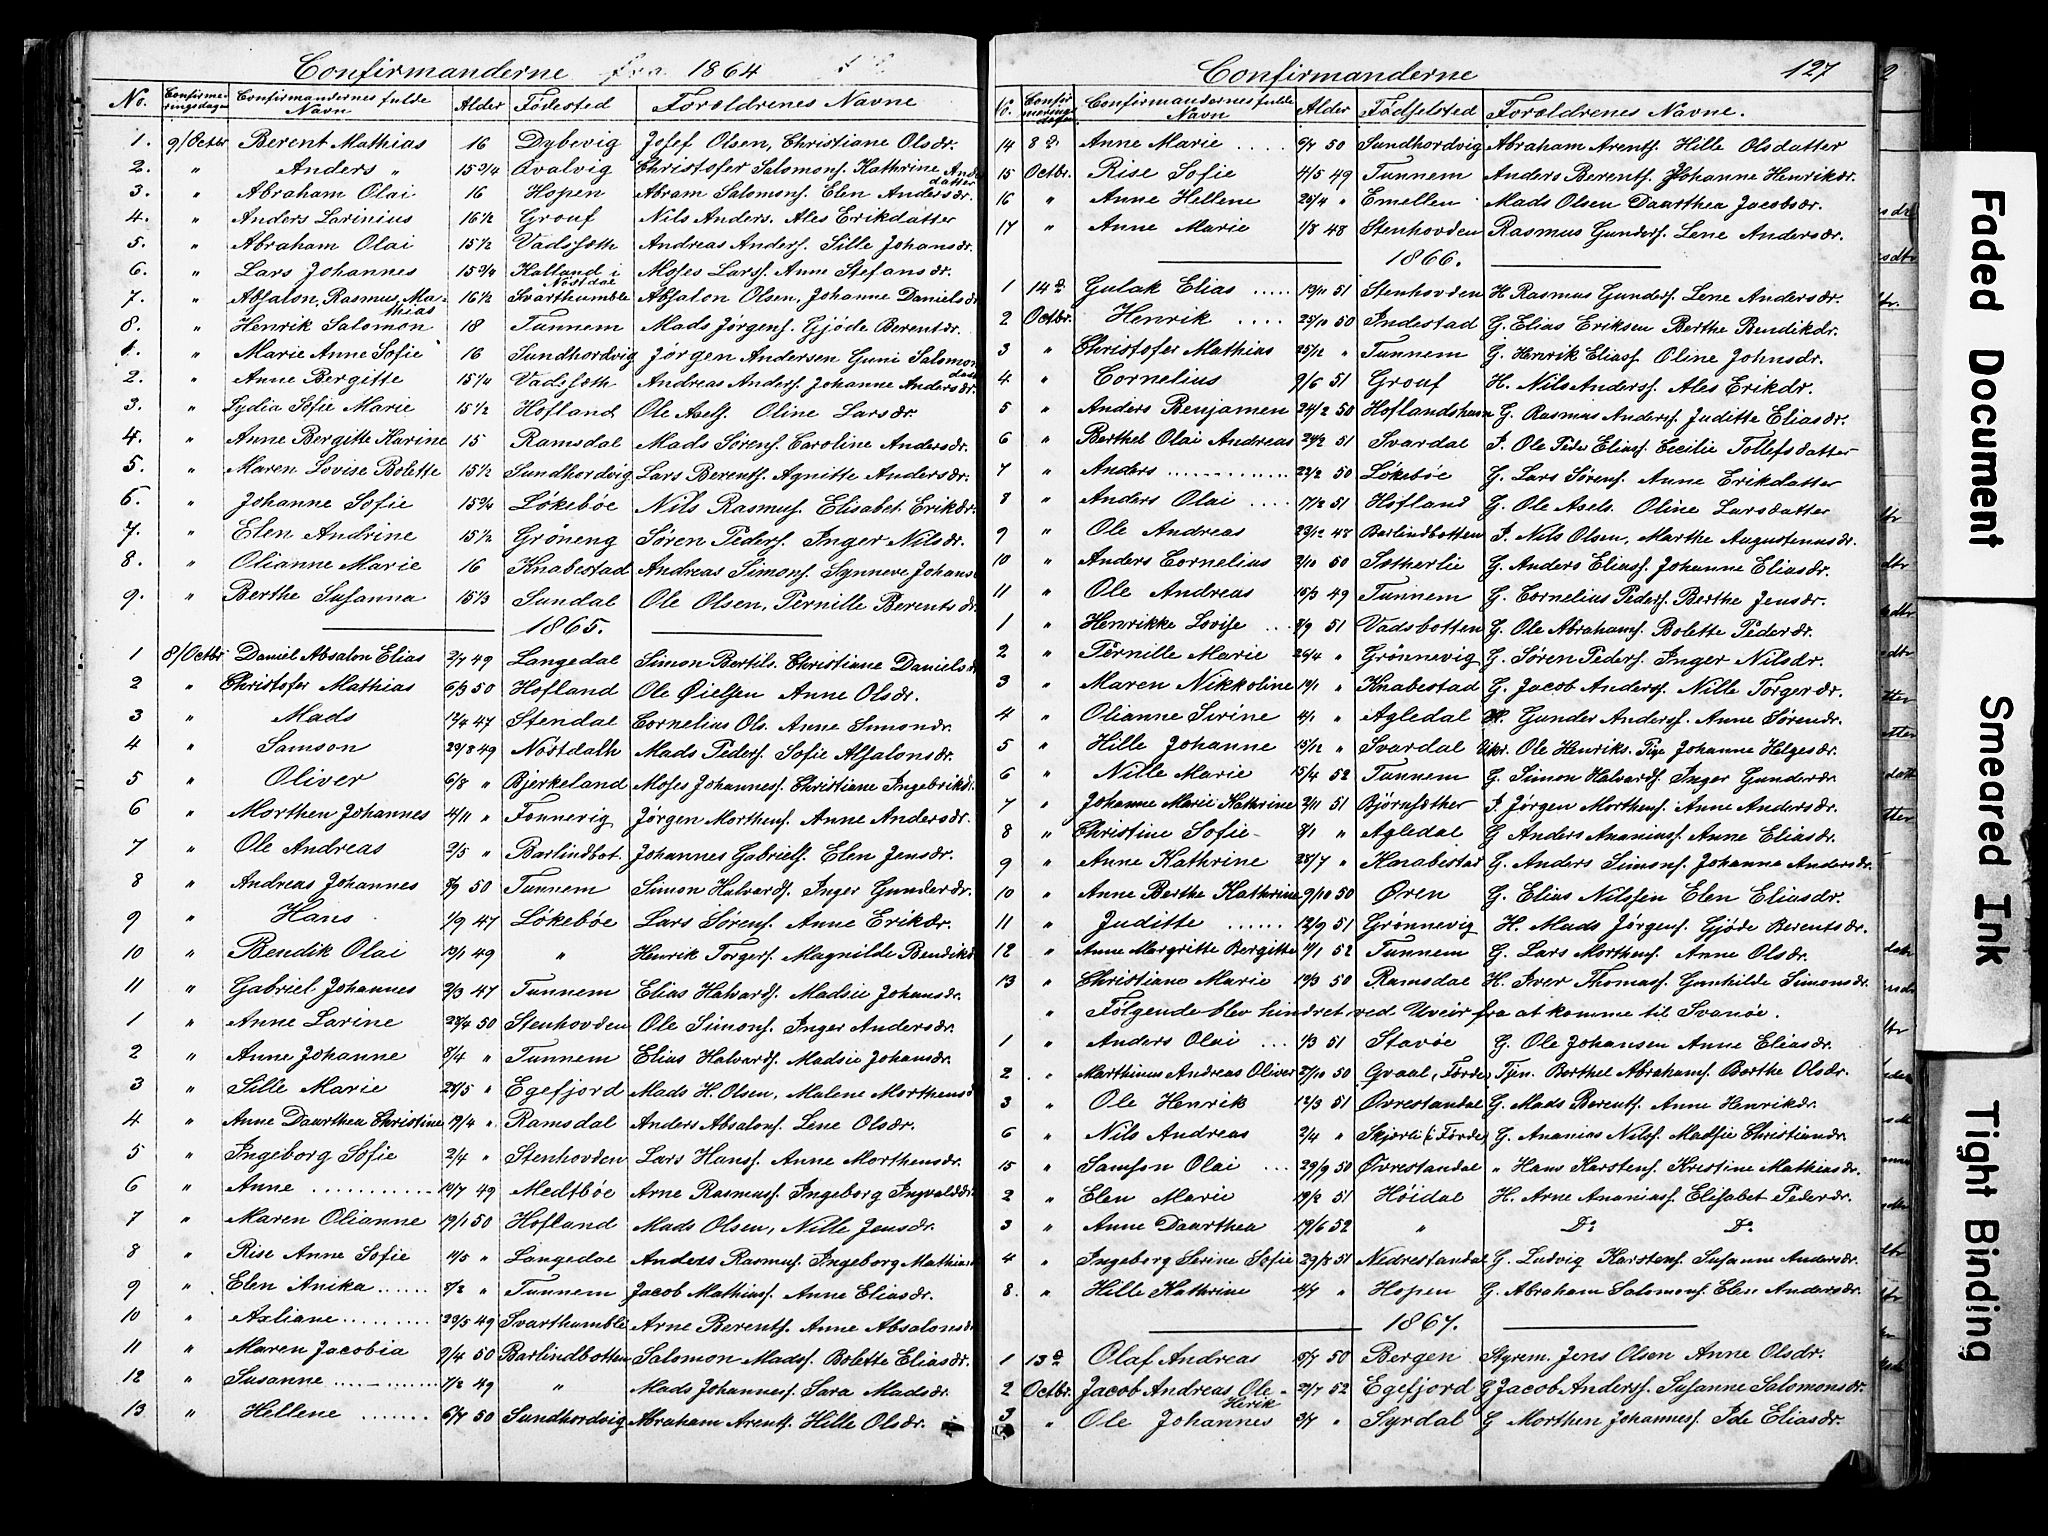 Confirmanderne fra 1864
No. Confirmeringsdagen Confirmandernes fulde Navn Alder Fødested Forældrenes Navne
1. 9/Octbr Berent Mathias 16 Dybevig Josef Olsen, Christiane Olsdr.
2. " Anders " 15 3/4 Qvalvig Christofer Salomons. Kathrine Andersdatter
3. " Abraham Olai 16 Hopen Abram Salomons. Elen Andersdr.
4. " Anders Larinius 16 1/2 Grouf Nils Anders. Ales Erikdatter
5. " Abraham Olai 15 1/2 Vadsfæth Andreas Anders. Sille Johansdr.
6. " Lars Johannes 15 3/4 Halland i Nøstdal Moses Larss. Anne Stefansdr.
7. " Absalon, Rasmus Mathias 16 1/2 Svarthumble Absalon Olsen, Johanne Danielsdr
8. " Henrik Salomon 18 Tunnem Mads Jørgens. Gjøde Berentdr.
1. " Marie Anne Sofie 16 Sundhordvig Jørgen Andersen Guni Salomondatt
2. " Anne Bergitte 15 1/4 Vadsfæth Andreas Anders. Johanne Andersdr.
3. " Lydia Sofie Marie 15 1/2 Hofland Ole Axels. Oline Larsdr.
4. " Anne Bergitte Karine 15 Ramsdal Mads Sørens. Caroline Andersdr.
5. " Maren Lovise Bolette 15 1/2 Sundhordvig Lars Berents. Agnitte Andersdr.
6. " Johanne Sofie 15 3/4 Løkebøe Nils Rasmus. Elisabet Erikdr.
7. " Elen Andrine 15 1/2 Grøneng Søren Peders. Inger Nilsdr.
8. " Olianne Marie 16 Knabestad Andreas Simons. Synneve Johans
9. " Berthe Susanna 15 1/3 Sundal Ole Olsen, Pernille Berentsdr
1865.
1 8/Octbr Daniel Absalon Elias 2/7 49 Langedal Simon Bertils. Christiane Danielsd
2 " Christofer Mathias 6/3 50 Hofland Ole Øielsen Anne Olsdr.
3 " Mads 17/4 47 Stendal Cornelius Ols. Anne Simondr.
4 " Samson 29/8 49 Nøstdalh Mads Peders. Sofie Absalonsdr.
5 " Oliver 6/8 " Bjerkeland Moses Johanness. Christiane Ingebrikdr.
6 " Morthen Johannes 4/11 " Fonnevig Jørgen Morthens. Anne Andersdr.
7 " Ole Andreas 2/5 " Barlindbot. Johannes Gabriels. Elen Jensdr.
8 " Andreas Johannes 8/9 50 Tunnem Simon Halvards. Inger Gunderdr.
9 " Hans 1/9 47 Løkebøe Lars Sørens. Anne Erikdr.
10 " Bendik Olai 13/1 49 " Henrik Torgers. Magnilde Bendikd
11 " Gabriel Johannes 2/3 47 Tunnem Elias Halvards. Madsie Johansdr.
1 " Anne Larine 28/4 50 Stenhovden Ole Simons. Inger Andersdr.
2 " Anne Johanne 8/4 " Tunnem Elias Halvards. Madsie Johansdr.
3 " Sille Marie 28/5 " Egefjord Mads H. Olsen, Malene Morthensd
4 " Anne Daarthea Christine 19/4 " Ramsdal Anders Absalons. Line Olsdr.
5 " Ingeborg Sofie 2/4 " Stenhovden Lars Hanss. Anne Morthensdr.
6 " Anne 10/7 49 Medtbøe Arne Rasmuss. Ingeborg Ingvaldsdr.
7 " Maren Olianne 19/1 50 Hofland Mads Olsen, Nille Jensdr.
8 " Rise Anne Sofie 11/5 " Langedal Anders Rasmus. Ingeborg Mathias
9 " Elen Anika 8/2 " Tunnem Jacob Mathiass. Anne Eliasdr.
10 " Axliane 29/5 49 Svarthumble Arne Berents. Anne Absalonsdr
11 " Maren Jacobia 9/4 50 Barlindbotten Salomon Madss. Bolette Eliasdr.
12 " Susanne 7/2 49 " Mads Johanness. Sara Madsdr.
13 " Hellene 6/7 50 Sundhordvig Abraham Arents. Hille Olsdr.
Confirmanderne 127
No. Confirmeringsdagen Confirmandernes fulde Navn Alder Fødselsted Forældrenes Navne.
14 8de Anne Marie 6/7 50 Sundhordvig Abraham Arents. Hille Olsdatter
15 Octbr. Rise Sofie 4/5 49 Tunnem Anders Berents. Johanne Henrikdr.
16 " Anne Hellene 26/4 " Emellen Mads Olsen Daarthea Jacobsdr.
17 " Anne Marie 1/8 48 Stenhovden Rasmus Gunders. Lene Andersdr.
1866.
1 14de Gulak Elias 19/11 51 Stenhovden H Rasmus Gunders. Lene Andersdr.
2 Octbr. Henrik 25/10 50 Indestad G. Elias Eriksen Berthe Bendikdr.
3 " Christofer Mathias 25/12 " Tunnem G. Henrik Eliass. Oline Johnsdr.
4 " Cornelius 9/6 51 Grouf H. Nils Anderss. Ales Erikdr.
5 " Anders Benjamen 24/2 50 Hoflandshavn G. Rasmus Anders. Juditte Eliasdr.
6 " Berthel Olai Andreas 24/2 51 Svardal I. Ole Peder Eliass. Cecilie Tollefsdatter
7 " Anders 23/2 50 Løkebøe G. Lars Sørens. Anne Erikdatter
8 " Anders Olai 17/2 51 Hofland G. Ole Axels. Oline Larsdatter
9 " Ole Andreas 23/12 48 Barlindbotten I. Nils Olsen, Marthe Augustenusdr.
10 " Anders Cornelius 2/10 50 Sætherlie G. Anders Eliass. Johanne Eliasdr.
11 " Ole Andreas 15/3 49 Tunnem G. Cornelius Peders. Berthe Jensdr.
1 " Henrikke Lovise 3/9 51 Vadsbotten G. Ole Abrahams. Bolette Pederdr.
2 " Pernille Marie 26/4 " Grønnevig G. Søren Peders. Inger Nilsdr.
3 " Maren Nikkoline 19/1 " Knabestad G. Jacob Anders. Nille Torgerdr.
4 " Olianne Sirine 4/1 " Agledal H. Gunder Anderss. Anne Sørendr.
5 " Hille Johanne 15/12 " Svardal Ukr. Ole Henriks. Pige Johanne Helgesdr.
6 " Nille Marie 15/4 52 Tunnem G. Simon Halvards. Inger Gunderdr.
7 " Johanne Marie Kathrine 2/11 51 Bjørnsæther I. Jørgen Morthens. Anne Andersdr.
8 " Christine Sofie 8/1 " Agledal G Anders Ananiass. Anne Eliasdr.
9 " Anne Kathrine 28/7 " Knabestad G. Anders Simons. Johanne Andersdr.
10 " Anne Berthe Kathrine 9/10 50 Øren G. Elias Nilssen Elen Eliasdr.
11 " Juditte 12/9 51 Grønnevig H. Mads Jørgens. Gjøde Berentsdr.
12 " Anne Margritte Bergitte 11/1 52 Tunnem G. Lars Morthens. Anne Olsdr.
13 " Christiane Marie 19/3 50 Ramsdal H. Iver Thomass. Gunhilde Simonsdr.
" Følgende blev hindret ved Uveir fra at komme til Svanøe.
1 " Anders Olai 1/3 51 Stavøe G. Ole Johansen Anne Eliasdr.
2 " Marthinus Andreas Oliver 27/10 50 Graal, Førde Tjen. Berthel Abrahams. Berthe Olsdr.
3 " Ole Henrik 12/3 51 Øvrestandal G. Mads Berents. Anne Henrikdr.
6 " Nils Andreas 2/4 " Skjærli (i Førde) G. Ananias Nilss. Madsie Christiandr.
15 " Samson Olai 29/9 50 Øvrestandal " Hans Karstens. Kristine Mathiasdr.
2 " Elen Marie 19/2 51 Høidal H. Arne Ananiass. Elisabet Pederdr.
3 " Anne Daarthea 19/6 52 " Do Do
4 " Ingeborg Serine Sofie 29/8 51 Nedrestandal G. Ludvig Karstens. Susanne Andersdr.
8. " Hille Kathrine 10/7 " Hopen G. Abraham Salomons. Elen Andersdr.
1867.
1 13de Olaf Andreas 15/7 50 Bergen Styrem. Jens Olsen Anne Olsdr.
2 Octbr. Jacob Andreas Ole Herik 29/7 52 Egefjord G Jacob Anderss. Susanne Salomonsdr.
3 " Ole Johannes 3/7 " Syrdal G Morthen Johanness. Ide Eliasdr.
Faded Document
Smeared Ink
Tight Binding